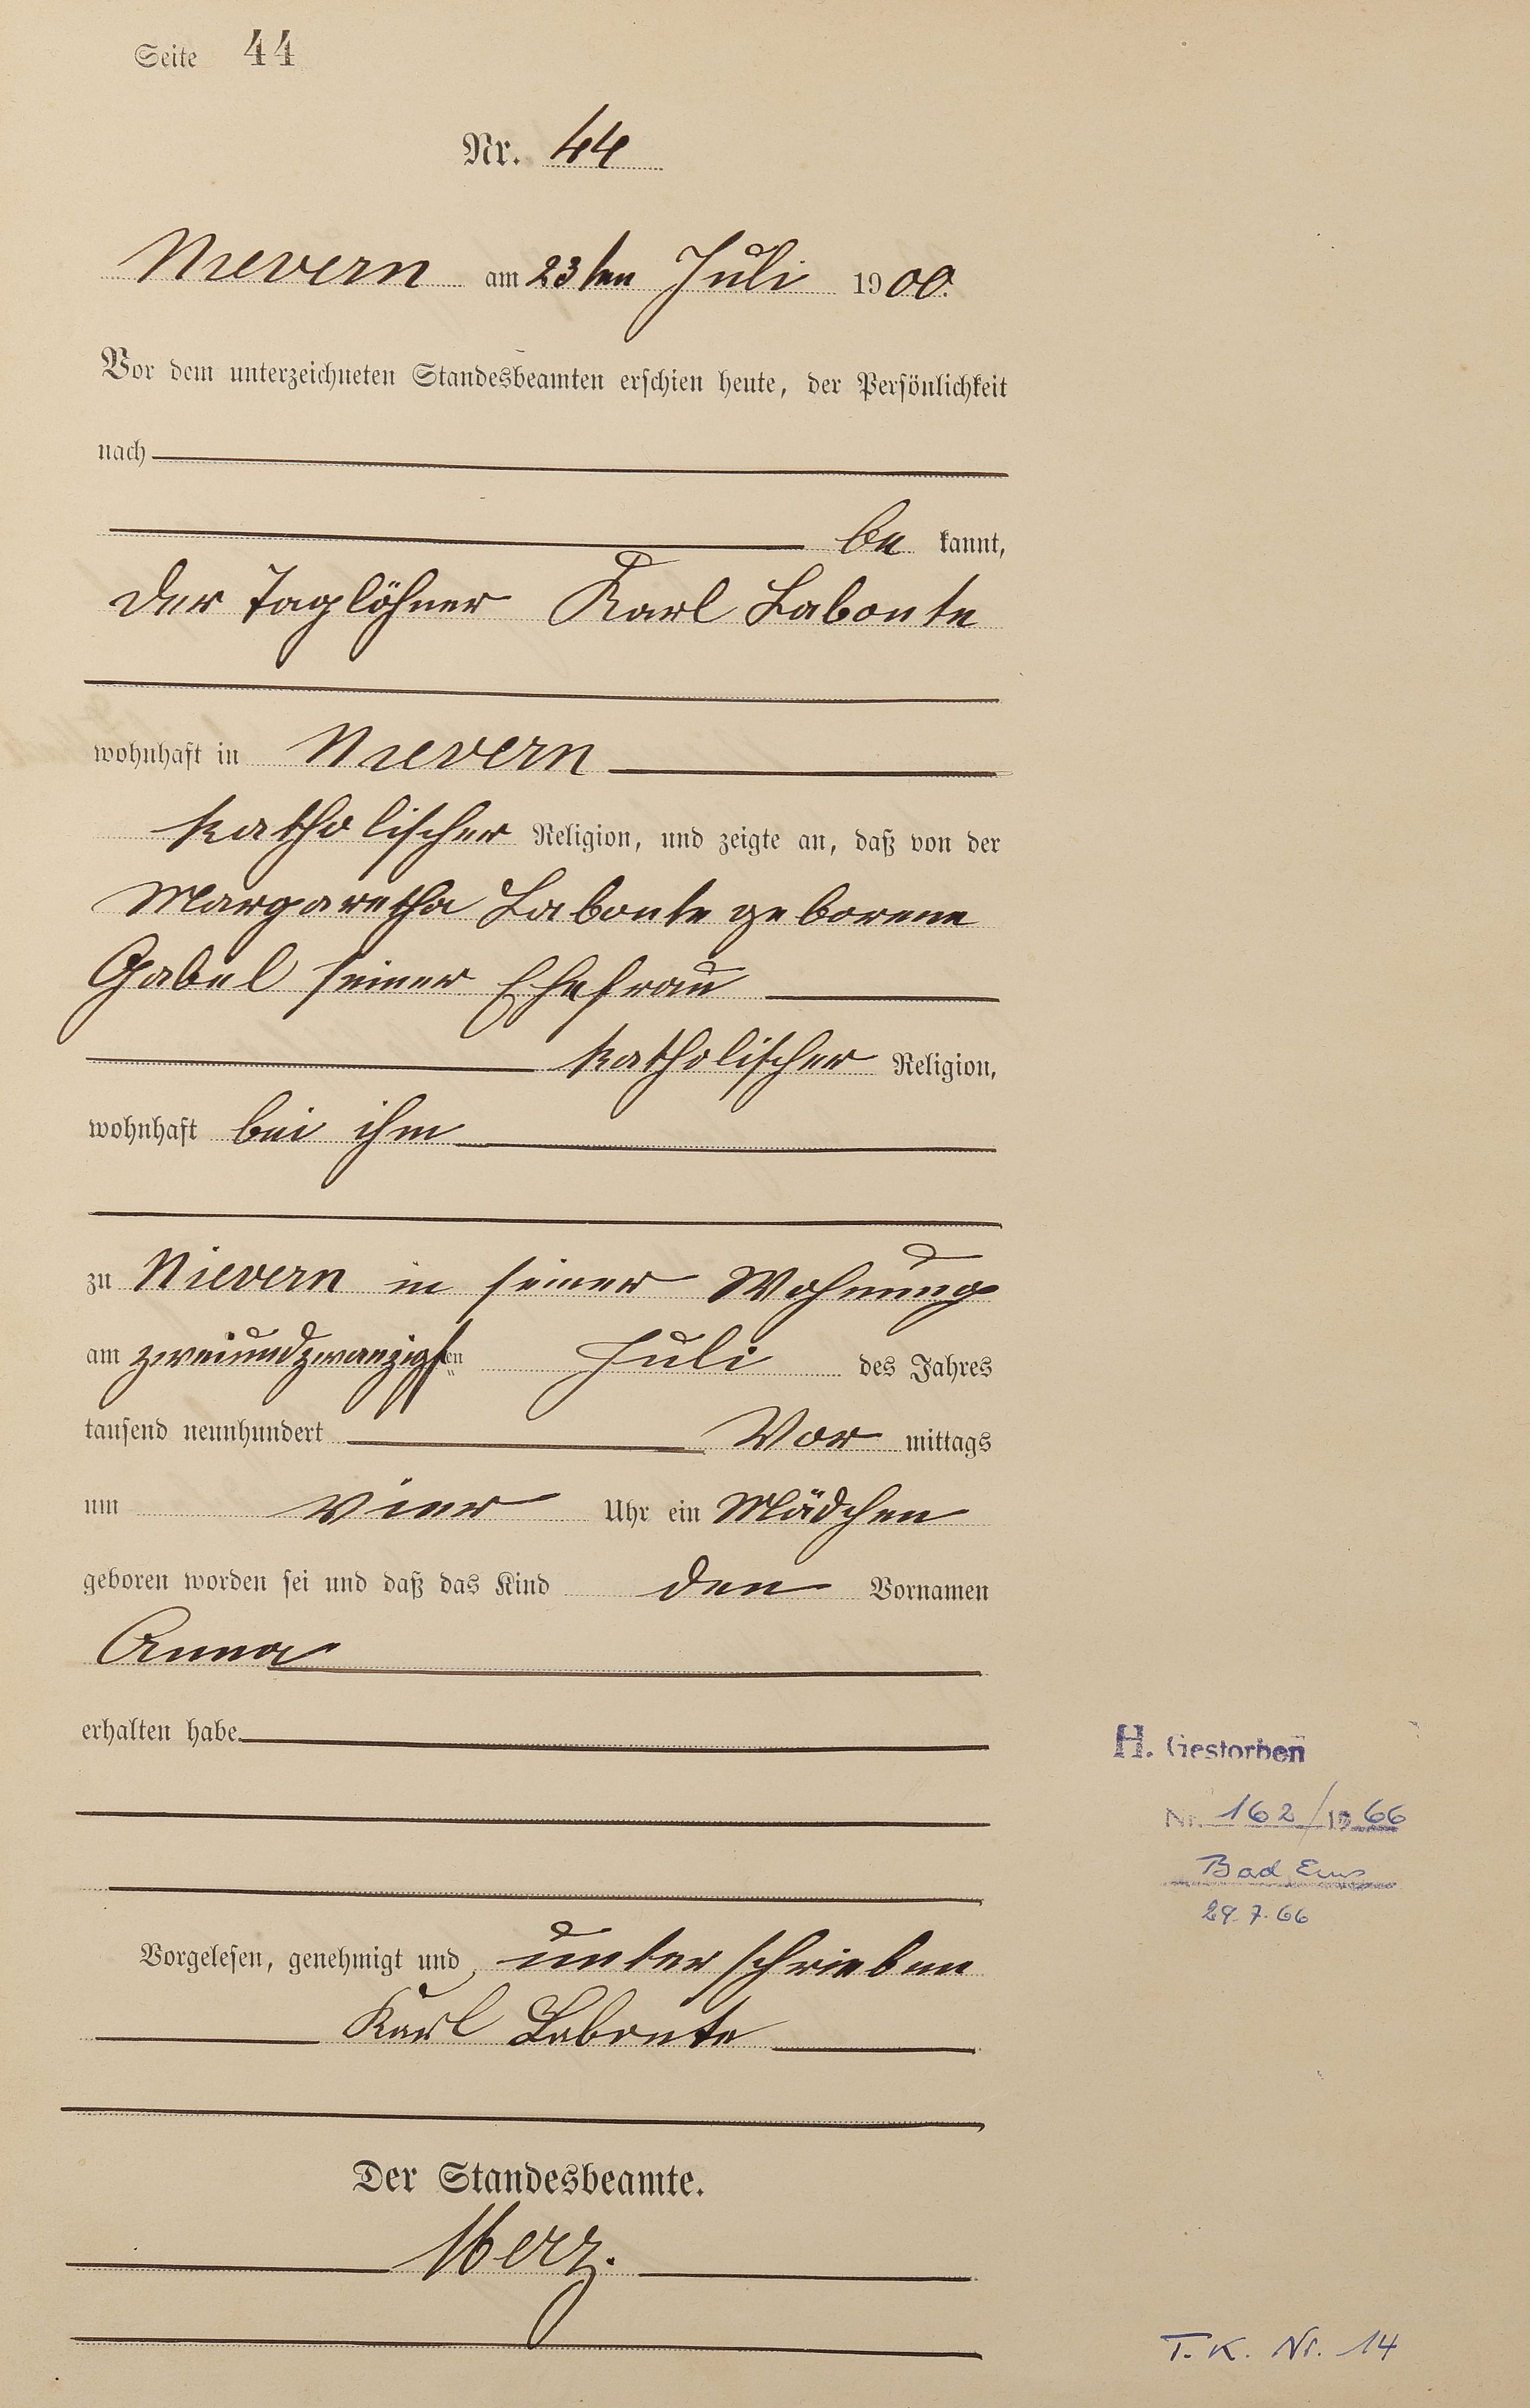 Seite 44
Nr. 44
Nievern am 23ten Juli 1900.
Vor dem unterzeichneten Standesbeamten erschien heute, der Persönlichkeit
nach
be kannt,
der Taglöhner Karl Labonte
wohnhaft in Nievern
katholischer Religion, und zeigte an, daß von der
Margaretha Labonte geborene
Gabel seiner Ehefrau
katholischer Religion,
wohnhaft bei ihm
zu Nievern in seiner Wohnung
am zweiundzwanzigsten Juli des Jahres
tausend neunhundert Vor mittags
um vier Uhr ein Mädchen
geboren worden sei und daß das Kind den Vornamen
Anna
erhalten habe.
H. Gestorben
Nr. 162/1966
Bad Ems
29.7.66
Vorgelesen, genehmigt und unterschrieben
Karl Labonte
Der Standesbeamte.
Herz.
T. K. Nr. 14